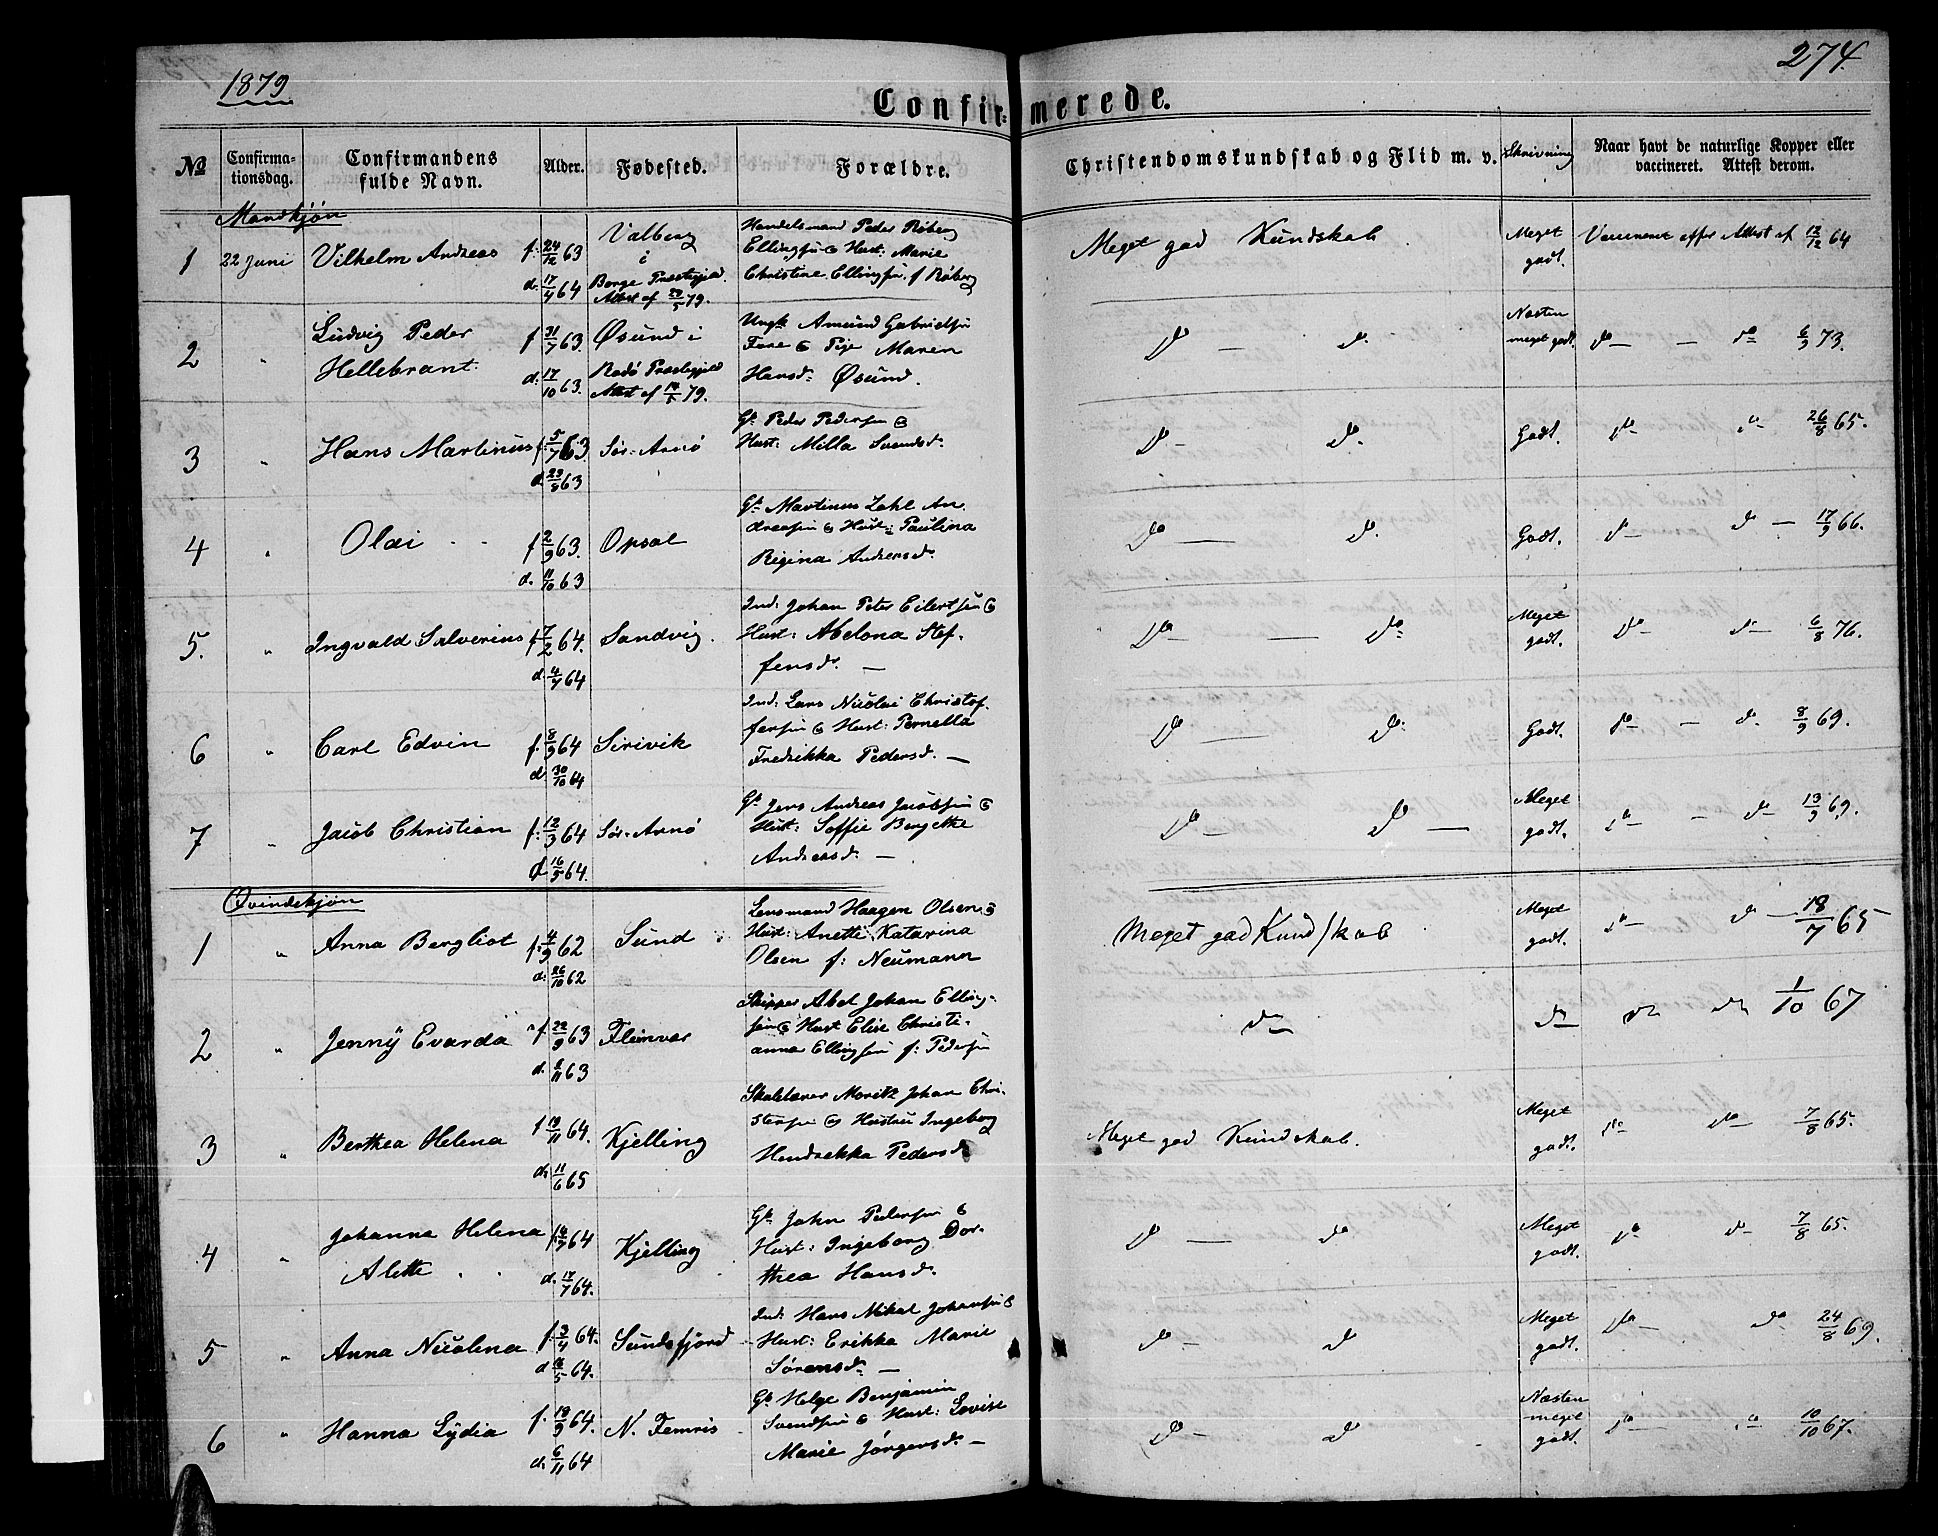 1879
274.
Confirmerede.
No
Confirmationsdag.
Confirmandens fulde Navn.
Alder.
Fødested.
Forældre.
Christendomskundskab og Flid m. v.
Skrivning
Naar havt de naturlige Kopper eller vaccineret. Attest derom.
Mandkjøn
1 22 Juni Vilhelm Andreas f. 24/12 63 d. 17/4 64
Valberg i Borge Præstegjeld. Attest af 79.
Handelsmand Peder Røberg
Ellingsen & Hust: Marie
Christine Ellingsen f. Røberg
Meget god Kundskab
Meget godt.
Vaccineret efter Attest af 12/12 64
2 " Ludvig Peder Hellebrant f 31/7 63. d. 17/10 63.
Øsund i Rødø Præstegjeld Attest af 79.
Ungk. Amund Gabrielsen
Fore & Pige Maren
Hansd. Øsund.
Do — Do
Næsten meget godt.
Do — Do 6/9 73.
3 " Hans Martinus f. 5/7 63 d. 23/8 63
Sør-Arnø
Gb. Peder Pedersen &
Hust: Milla Svendsd.
Do — Do
Godt.
Do Do 26/8 65.
4 " Olai f 2/9 63. d. 11/10 63
Opsal
Gb. Martinus Zahl An
dreasen & Hust: Paulina
Regina Andersd.
Do — Do
Godt.
Do Do — 17/9 66.
5. " Ingvald Salverius f 7/2 64. d. 4/7 64
Sandvig.
Ind: Johan Peter Eilertsen &
Hust: Abelona Stef-
fensd. —
Do — Do
Meget godt.
Do Do 6/8 76.
6 " Carl Edvin f. 8/9 64 d. 30/10 64
Sirivik
Ind: Lars Nicolai Christof
fersen & Hust: Pernella
Fredrikka Pedersd. —
Do — Do
Godt.
Do — Do 8/9 69.
7 " Jacob Christian f: 12/3 64 d 16/5 64.
Sør-Arnø
Gb. Jens Andreas Jacobsen &
Hust: Soffie Bergette
Andreasd. —
Do — Do —
Meget godt.
Do — Do 13/9 69.
Qvindekjøn
1 " Anna Bergliot f. 4/9 62 d: 26/10 62
Sund
Lensmand Haagen Olsen &
Hust: Anette Katarina
Olsen f: Neumann
Meget god Kundskab
Meget godt.
Do — Do — 18/7 65
2 " Jenny Evarda f. 22/9 63 d. 63
Fleinvær
Skipper Abel Johan Elling-
sen & Hust Elise Christi-
anna Ellingsen f: Pedersen
Do
Do
Do Do 1/10 67
3 " Berthea Helena f 64. d: 11/6 65
Kjelling
Skolelærer Moritz Johan Chri-
stensen & Hustru Ingeborg
Hendrekka Pedersd
Meget god Kundskab.
Meget godt.
Do Do 7/8 65.
4 " Johanna Helena Alette f. 64 d. 17/7 64.
Kjelling
Gb. John Pedersen &
Hust: Ingeborg Dor-
thea Hansd.
Do — Do
Meget godt.
Do Do 7/8 65.
5 " Anna Nicolina f. 3/4 64. d 64.
Sundsfjord
Ind: Hans Mikal Johansen &
Hust: Erikka Marie
Sørensd. —
Do — Do
Meget godt.
Do — Do 24/8 69.
6 " Hanna Lydia f. 18/9 64. d. 6/11 64
N. Femris
Gb. Helge Benjamin
Svendsen & Hust: Lovise
Marie Jørgensd. —
Do — Do
Næsten meget godt.
Do — Do 10/10 67.